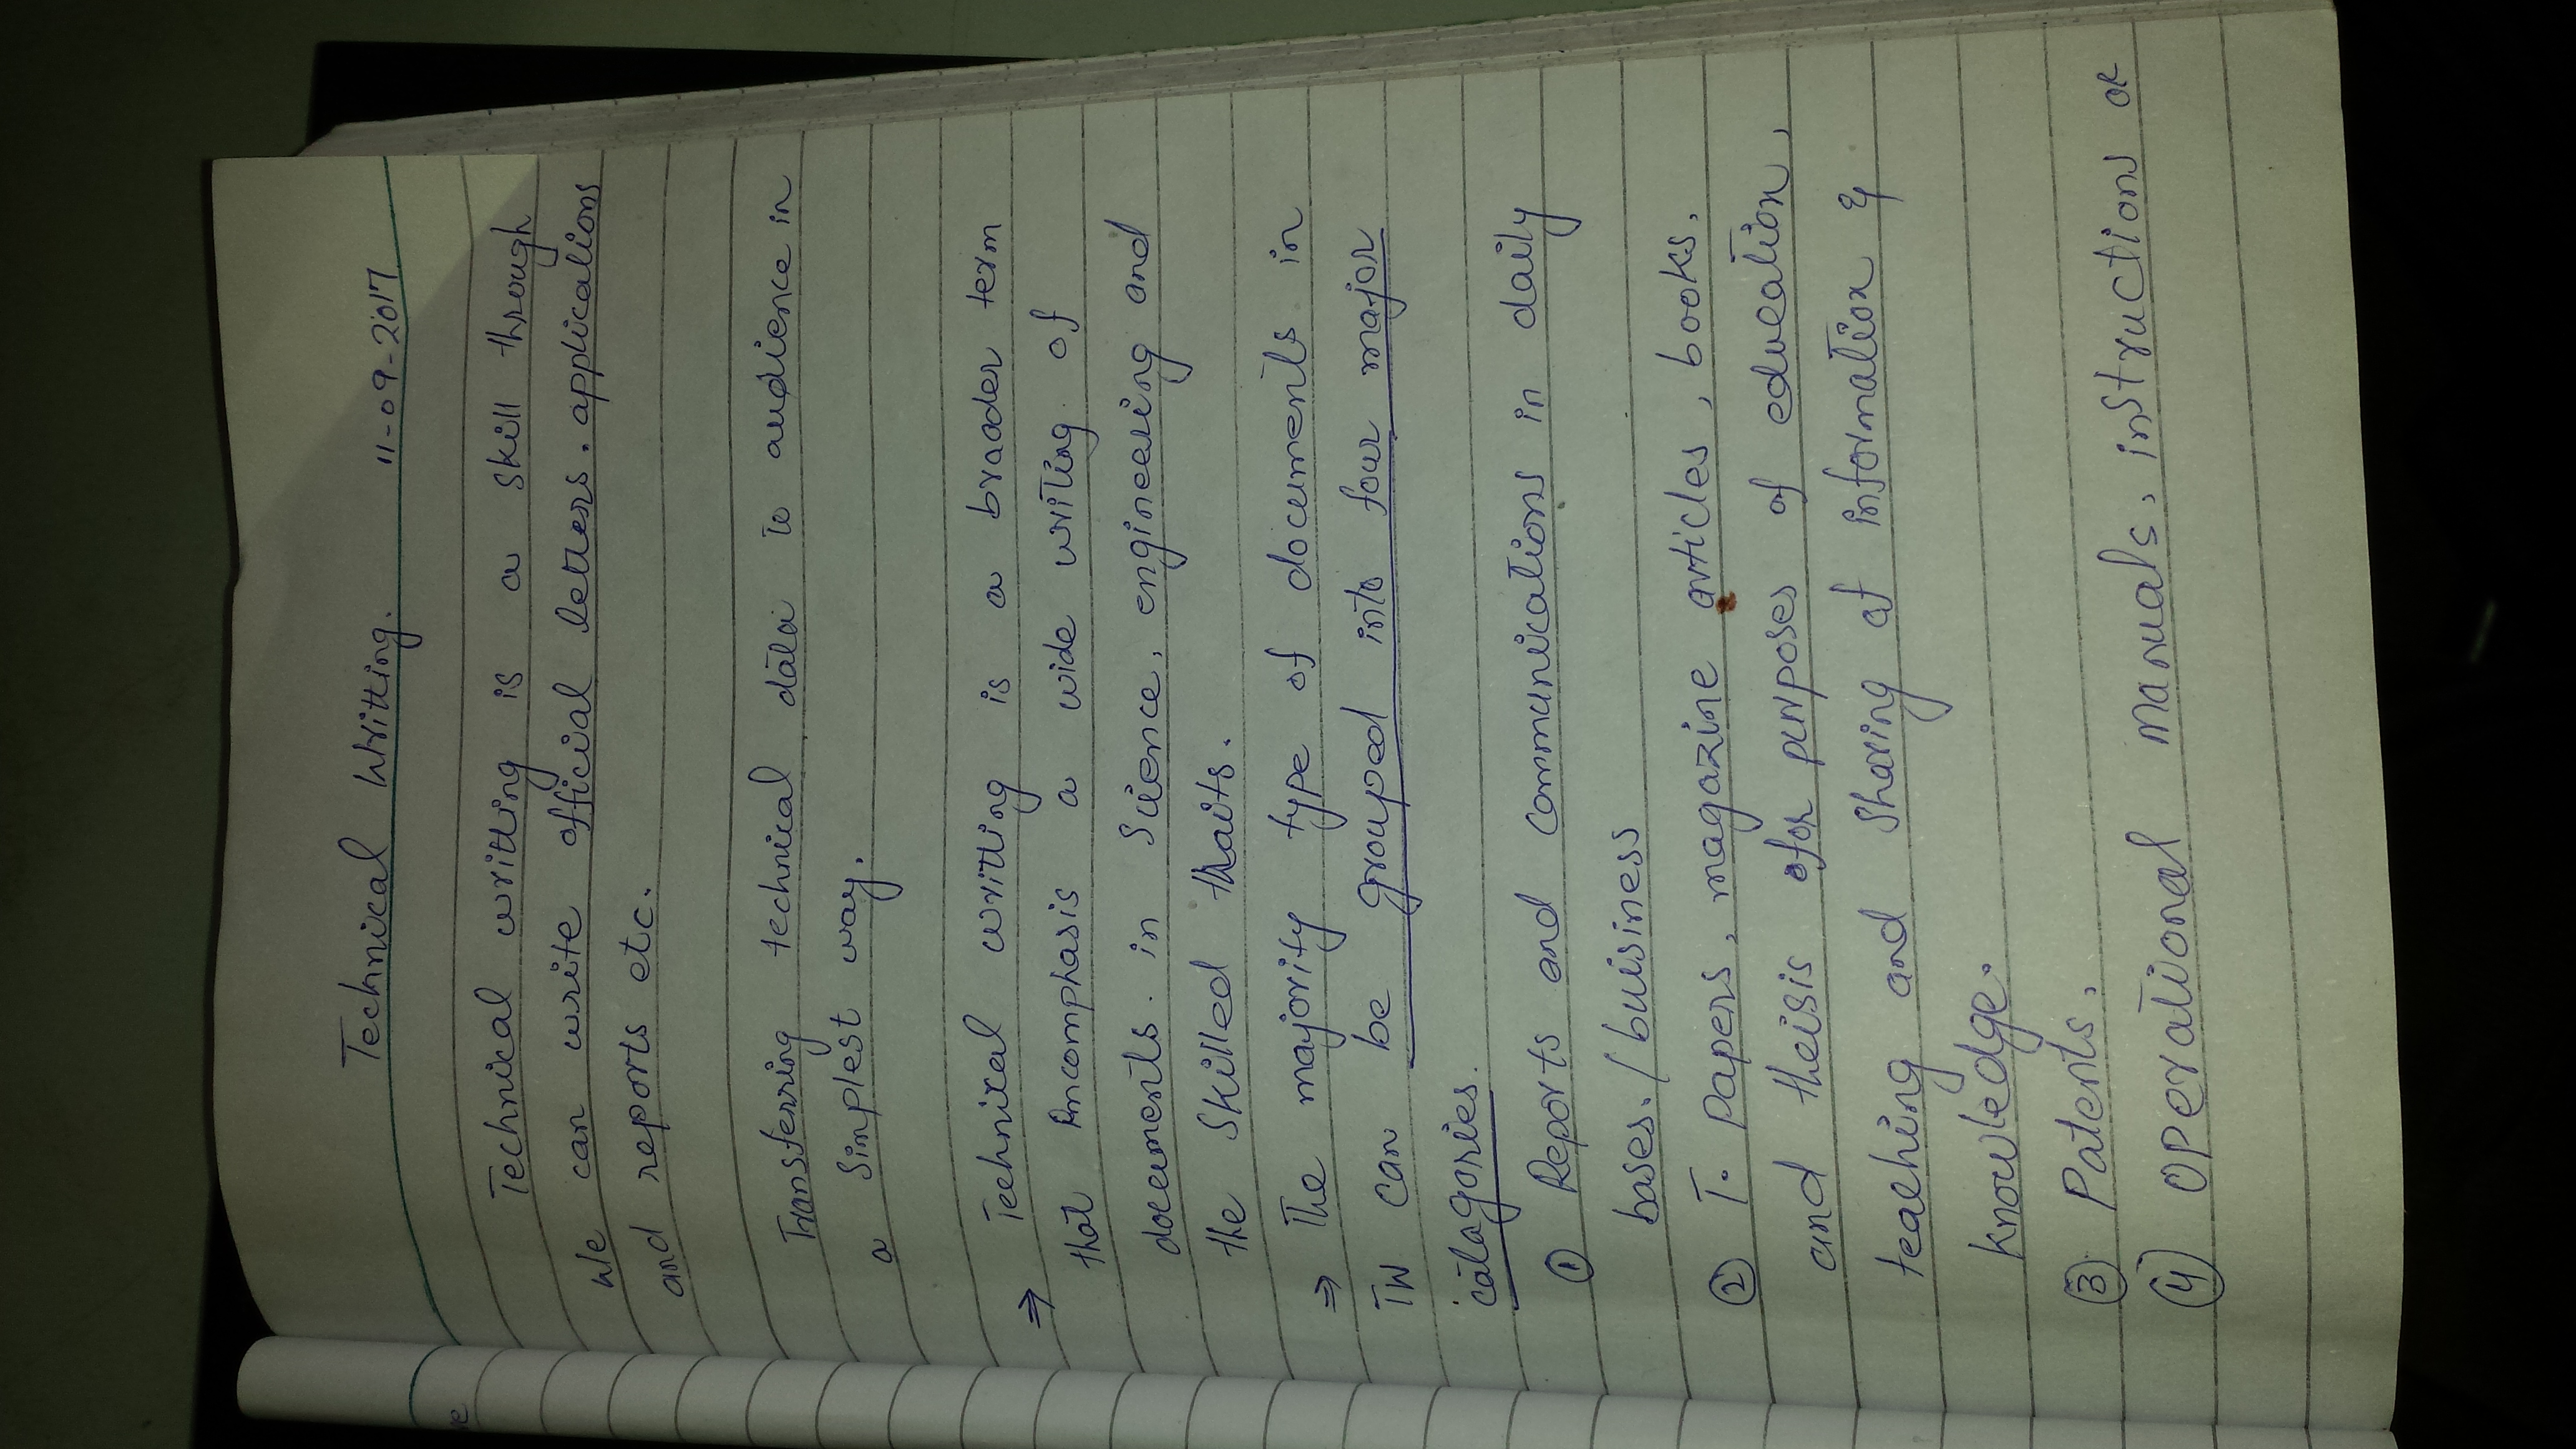 Technical Writting. 11-09-2017
Technical writting is a skill through
we can write official letters, applications
and reports etc.
Transferring technical data to audience in
a simplest way.
⇒ Technical writting is a braoder term
that Encomphasis a wide writing of
documents in Science, engineering and
the skilled traits.
⇒ The majority type of documents in
TW can be grouped into four major
catagories.
① Reports and communications in daily
bases. / buisiness
② T. papers, magazine articles, books,
and theisis for purposes of education,
teaching and sharing of information &
knowledge.
③ Patents,
④ Operational manuals, instructions or